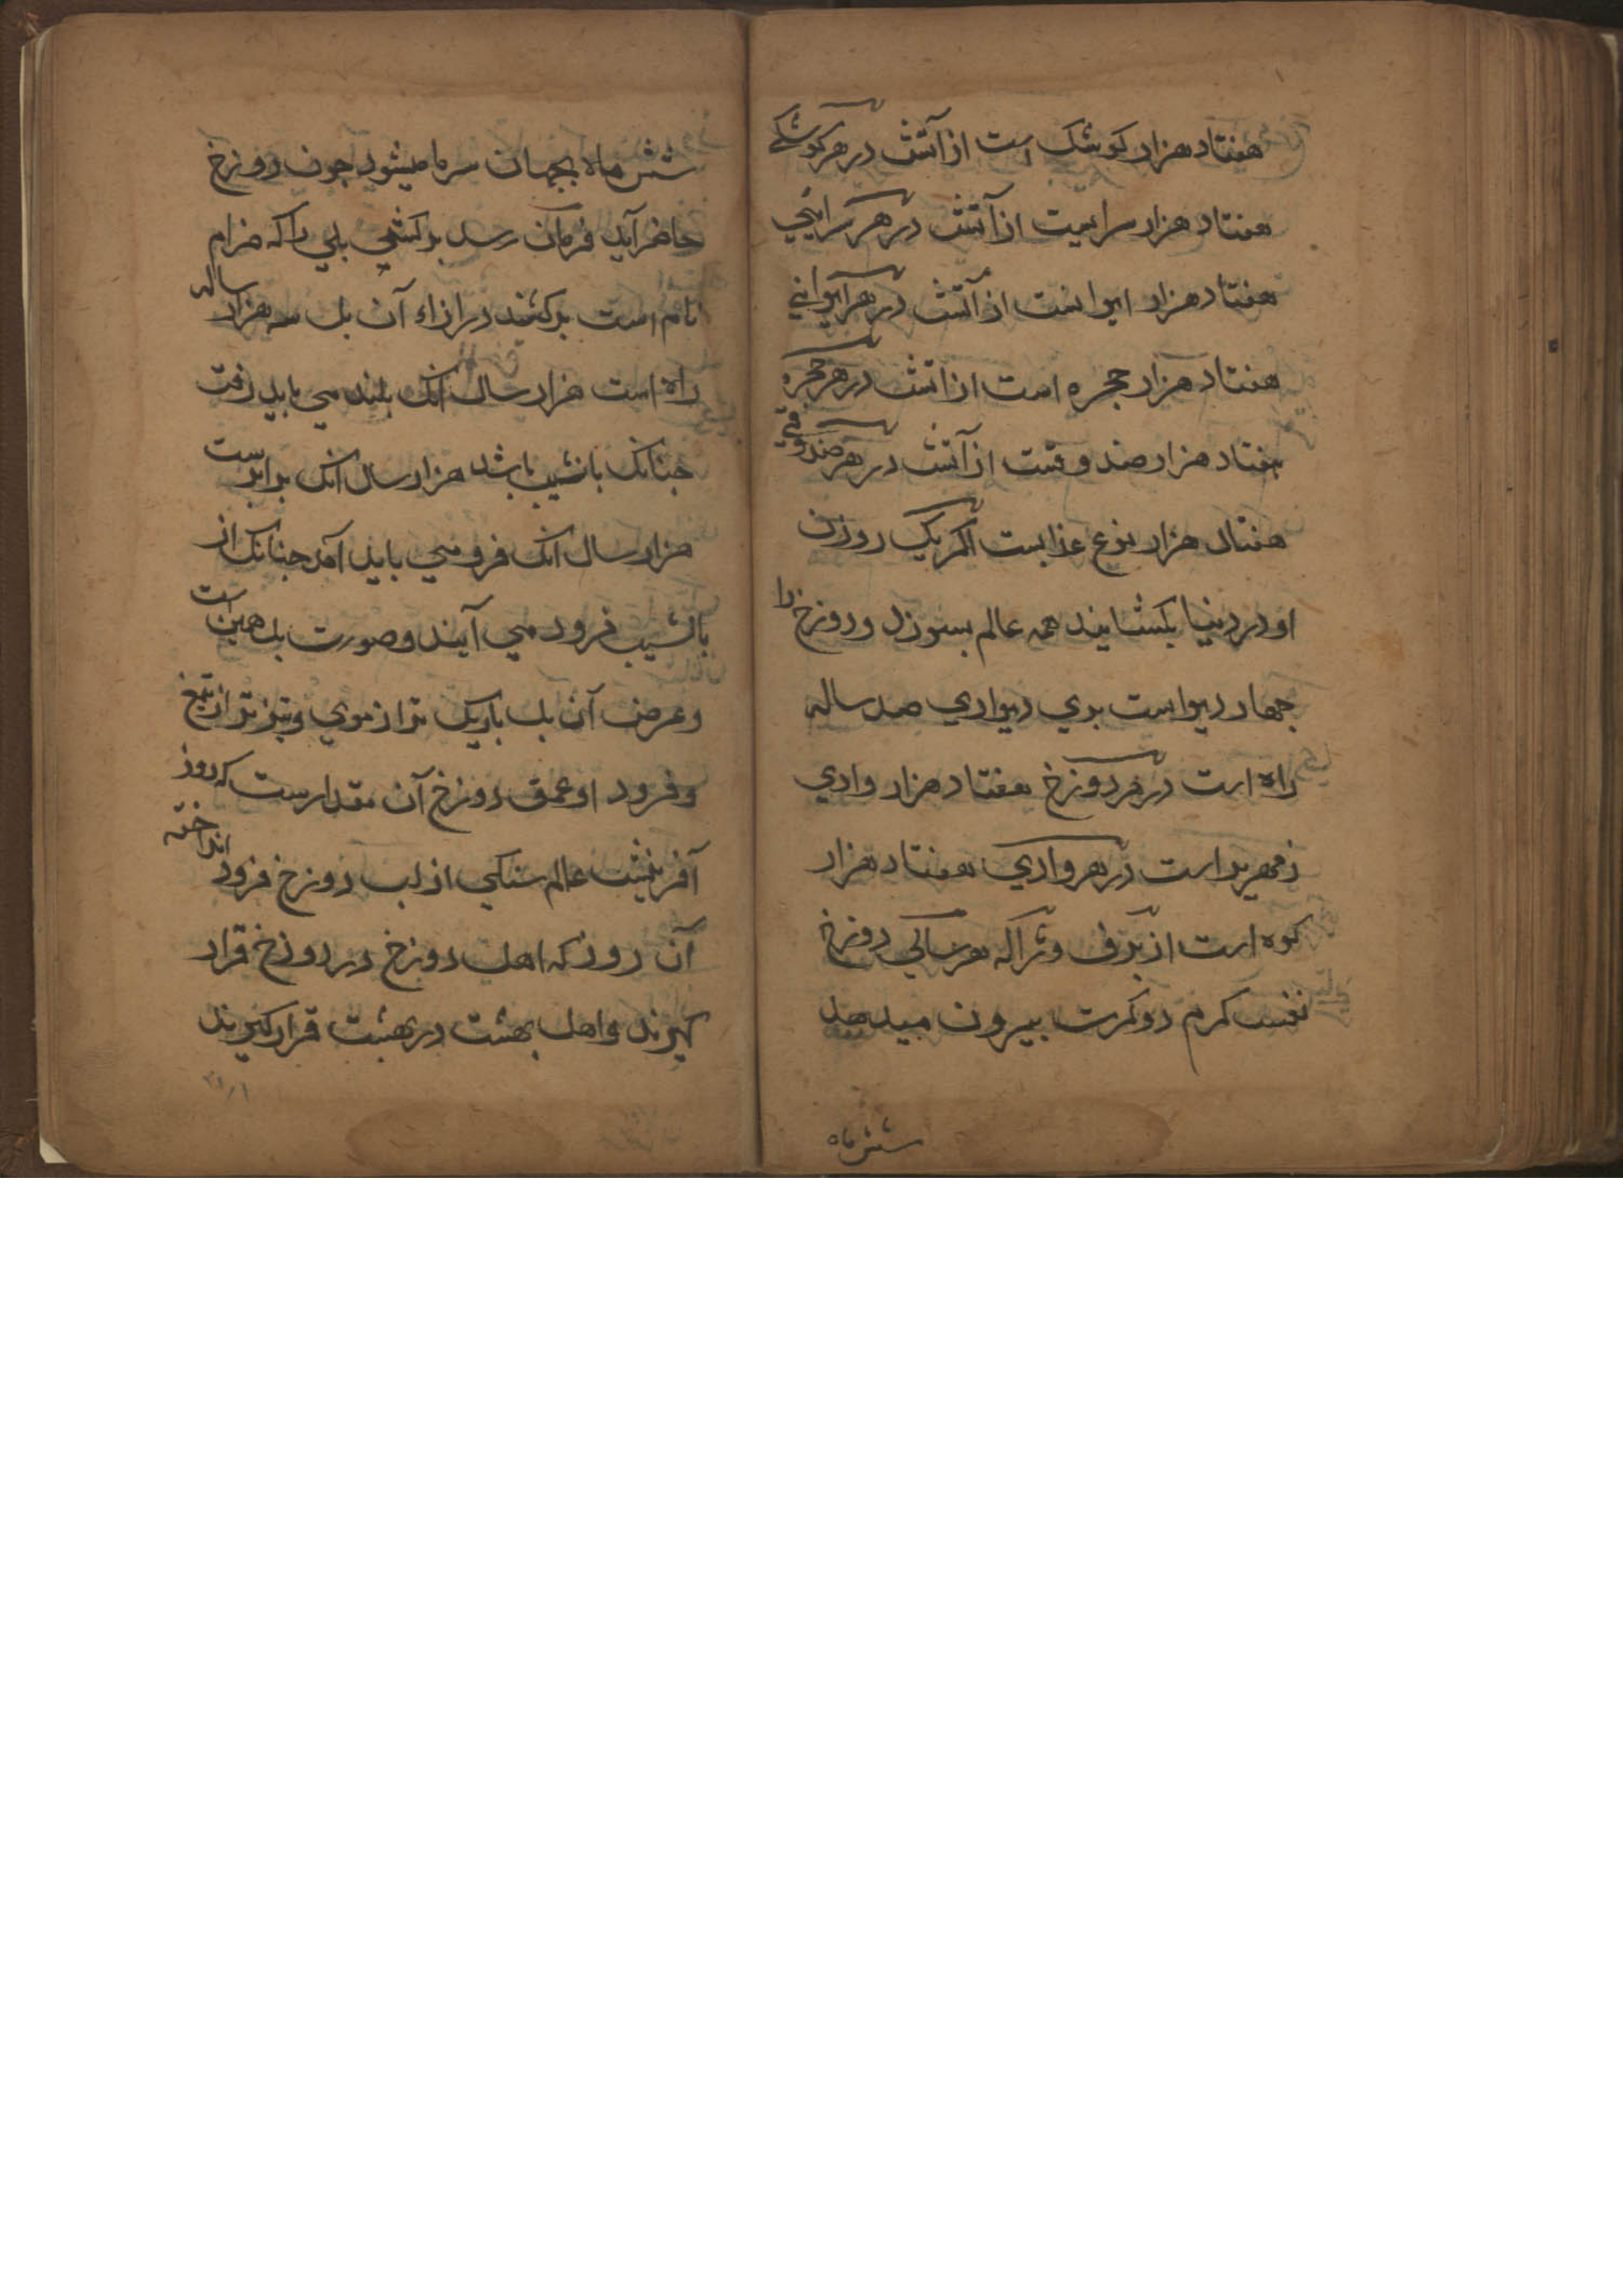 هفتاد هزار كوشك است از آتش در هر كوشكے
هفتاد هزار سراییت از آتش در هر سرايي
هفتاد هزار ایوانست از آتش در هر ايواني
هفتاد هزار حجره است از اتش در هر حجره
هفتاد هزار صندوقست از آتش در هر صندوقي
هفتاد هزار نوع عذابست اكر يك روزن
او در دنيا بكشايند همه عالم بسوزد و دوزخ را
جهار ديوارست بري ديواري صد ساله
راه است در هر دوزخ هفتاد هزار وادي
زمهرير است در هر وادي هفتاد هزار
كوه است از برف و ژاله هر سالي دوزخ
نفس كرم دو كرت بيرون ميدهد
شش ماه
شش ماه بجهان سرما ميشود جون دوزخ
حاضر آيد فرمان رسد بركشي پلي را كه صرام
نام است بركشند درازاء آن پل سه هزار ساله
راه است هزار سال انك بلند مي بايد رفت
جنانك بانشيب باشد هزار سال انك برابرست
هزار سال انك فرو مي بايد آمد جنانك از
بانشيب فرود مي آيند و صورت پل همين است
و عرض آن پل باريك تر از موي و تيز تر از تيغ
و فرود او عمق دوزخ آن مقدارست كه روز
آفرينش عالم سنكي از لب دوزخ فرود انداخته
آن روز كه اهل دوزخ در دوزخ قرار
كيرند و اهل بهشت در بهشت قرار كيرند